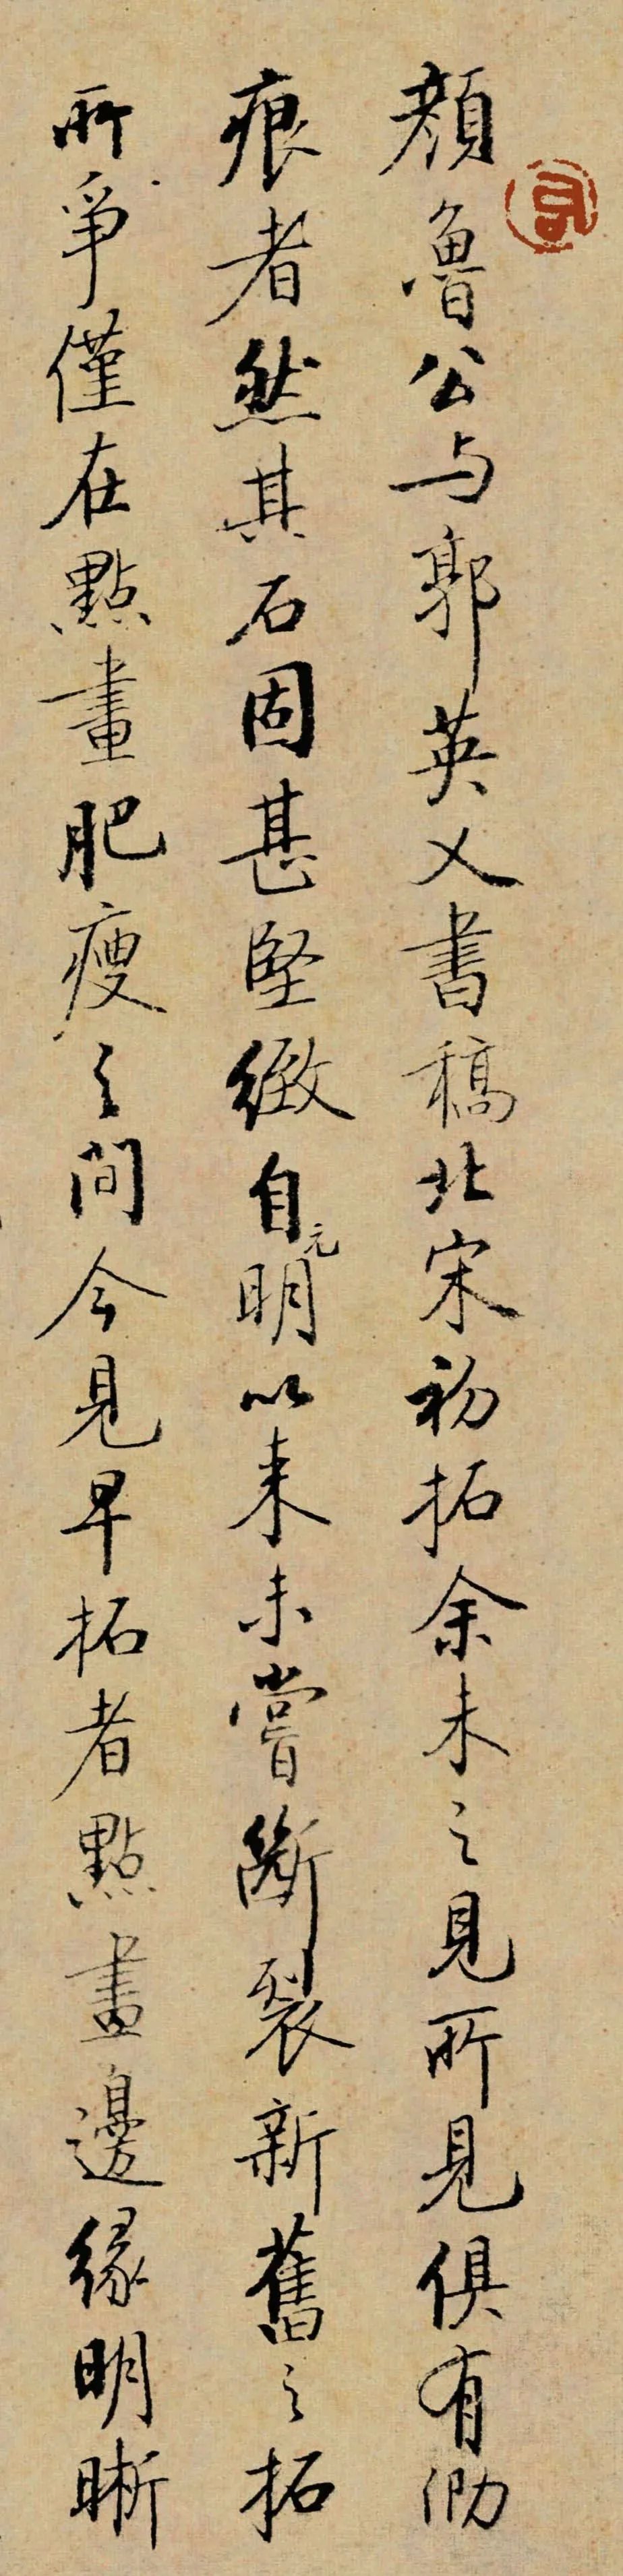 顏魯公与郭英乂書稿北宋初拓余未之見所見俱有泐
痕者然其石固甚堅緻自元明以来未嘗斷裂新舊之拓
所爭僅在點畫肥瘦之間今見早拓者點畫邊緣明晰